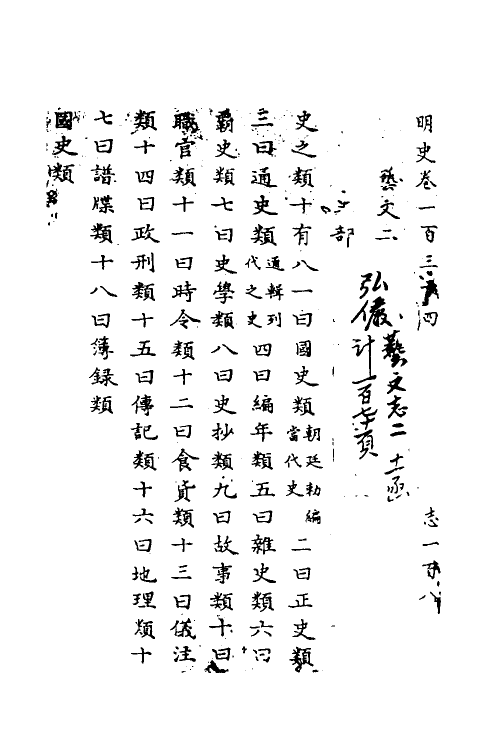 明史卷一百三十四 志一百八
藝文二
史部
弘儼藝文志二 十一函
計一百七十頁
史之類十有八一曰國史類朝廷勅編當代史二曰正史類
三曰通史類通輯列代之史四曰編年類五曰雜史類六曰
霸史類七曰史學類八曰史抄類九曰故事類十曰
職官類十一曰時令類十二曰食貨類十三曰儀注
類十四曰政刑類十五曰傳記類十六曰地理類十
七曰譜牒類十八曰簿錄類
國史類